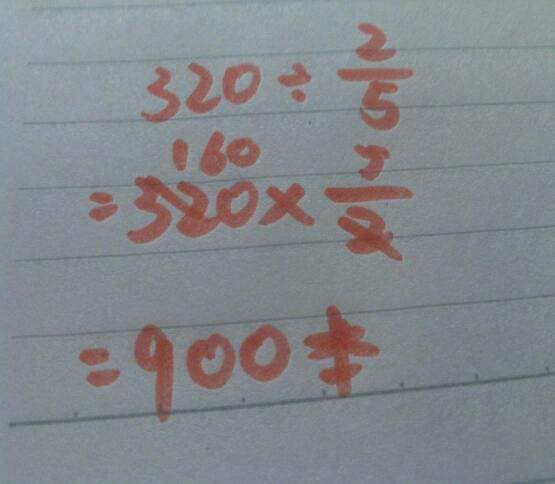 320 ÷ 2/5
160
= 320 × 5/2
= 900